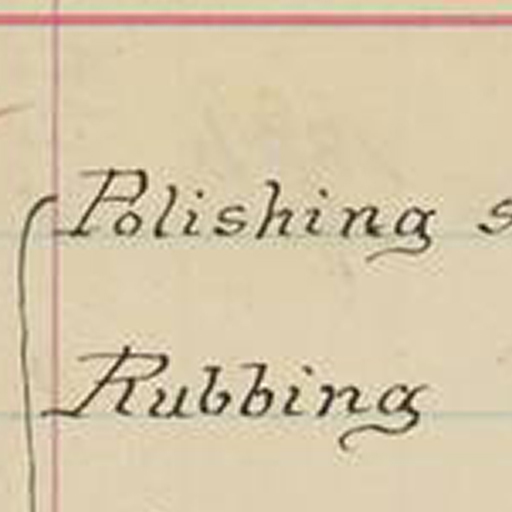 Polishing
Rubbing